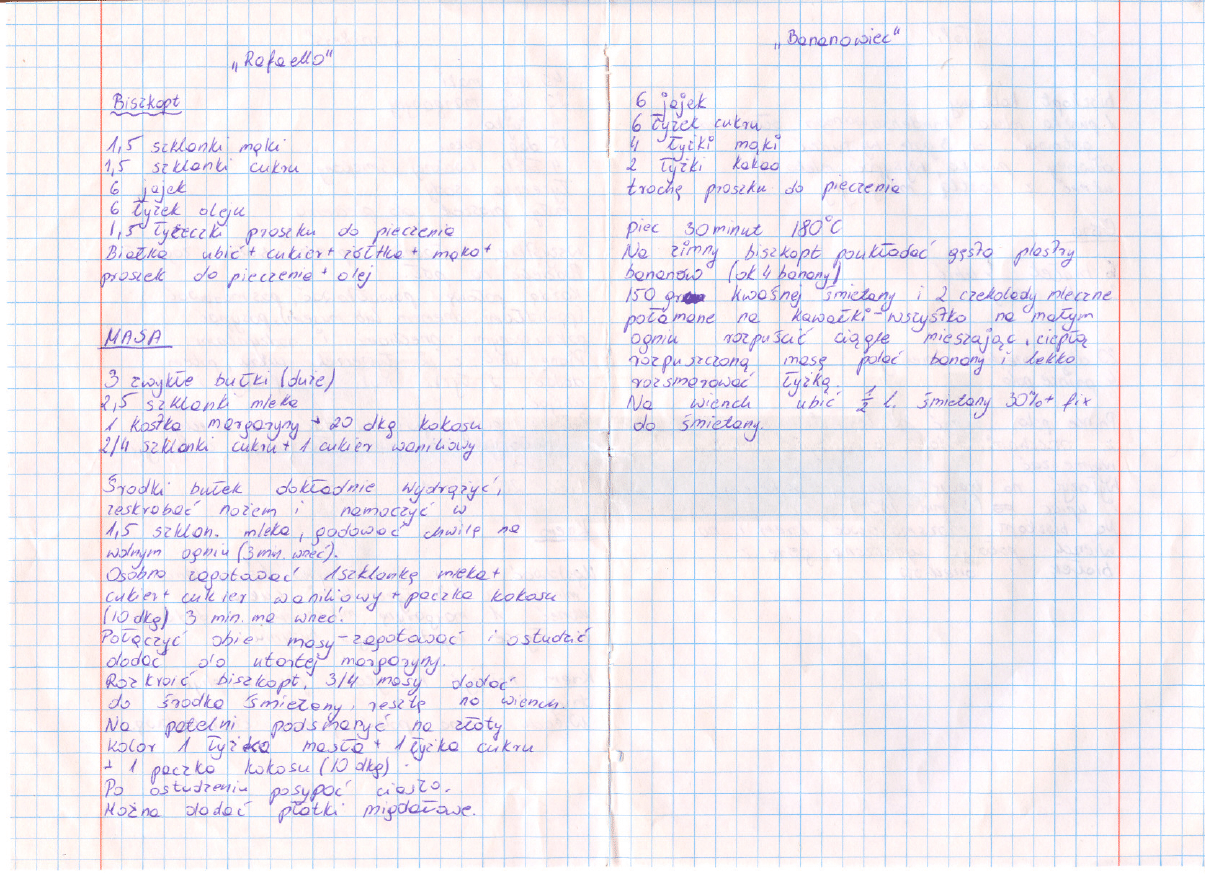 „Rafaello"
Biszkopt
1,5 szklanki mąki
1,5 szklanki cukru
6 jajek
6 łyżek oleju
1,5 łyżeczki proszku do pieczenia
Białka ubić + cukier + żółtka + mąka +
proszek do pieczenia + olej
MASA
3 zwykłe bułki (duże)
2,5 szklanki mleka
1 kostka margaryny + 20 dkg kokosu
2/4 szklanki cukru + 1 cukier waniliowy
Środki bułek dokładnie wydrążyć,
zeskrobać nożem i namoczyć w
1,5 szklan. mleka, gotować chwilę na
wolnym ogniu (3 min. wrzeć).
Osobno zagotować 1 szklankę mleka +
cukier + cukier waniliowy + paczka kokosu
(10 dkg) 3 min. ma wrzeć!
Połączyć obie masy - zagotować i ostudzić
dodać do utartej margaryny.
Rozkroić biszkopt, 3/4 masy dodać
do środka śmietany, resztę na wierzch.
Na patelni podsmażyć na złoty
kolor 1 łyżka masła + 1 łyżka cukru
+ 1 paczka kokosu (10 dkg).
Po ostudzeniu posypać ciasto.
Można dodać płatki migdałowe.
„Bananowiec"
6 jajek
6 łyżek cukru
4 łyżki mąki
2 łyżki kakao
trochę proszku do pieczenia
piec 30 minut 180°C
Na zimny biszkopt poukładać gęsto plastry
bananów (ok 4 banany)
150 gr kwaśnej śmietany i 2 czekolady mleczne
połamane na kawałki - wszystko na małym
ogniu rozpuścić ciągle mieszając, ciepłą
rozpuszczoną masę polać banany i lekko
rozsmarować łyżką.
Na wierzch ubić 1/2 l. śmietany 30% + fix
do śmietany.